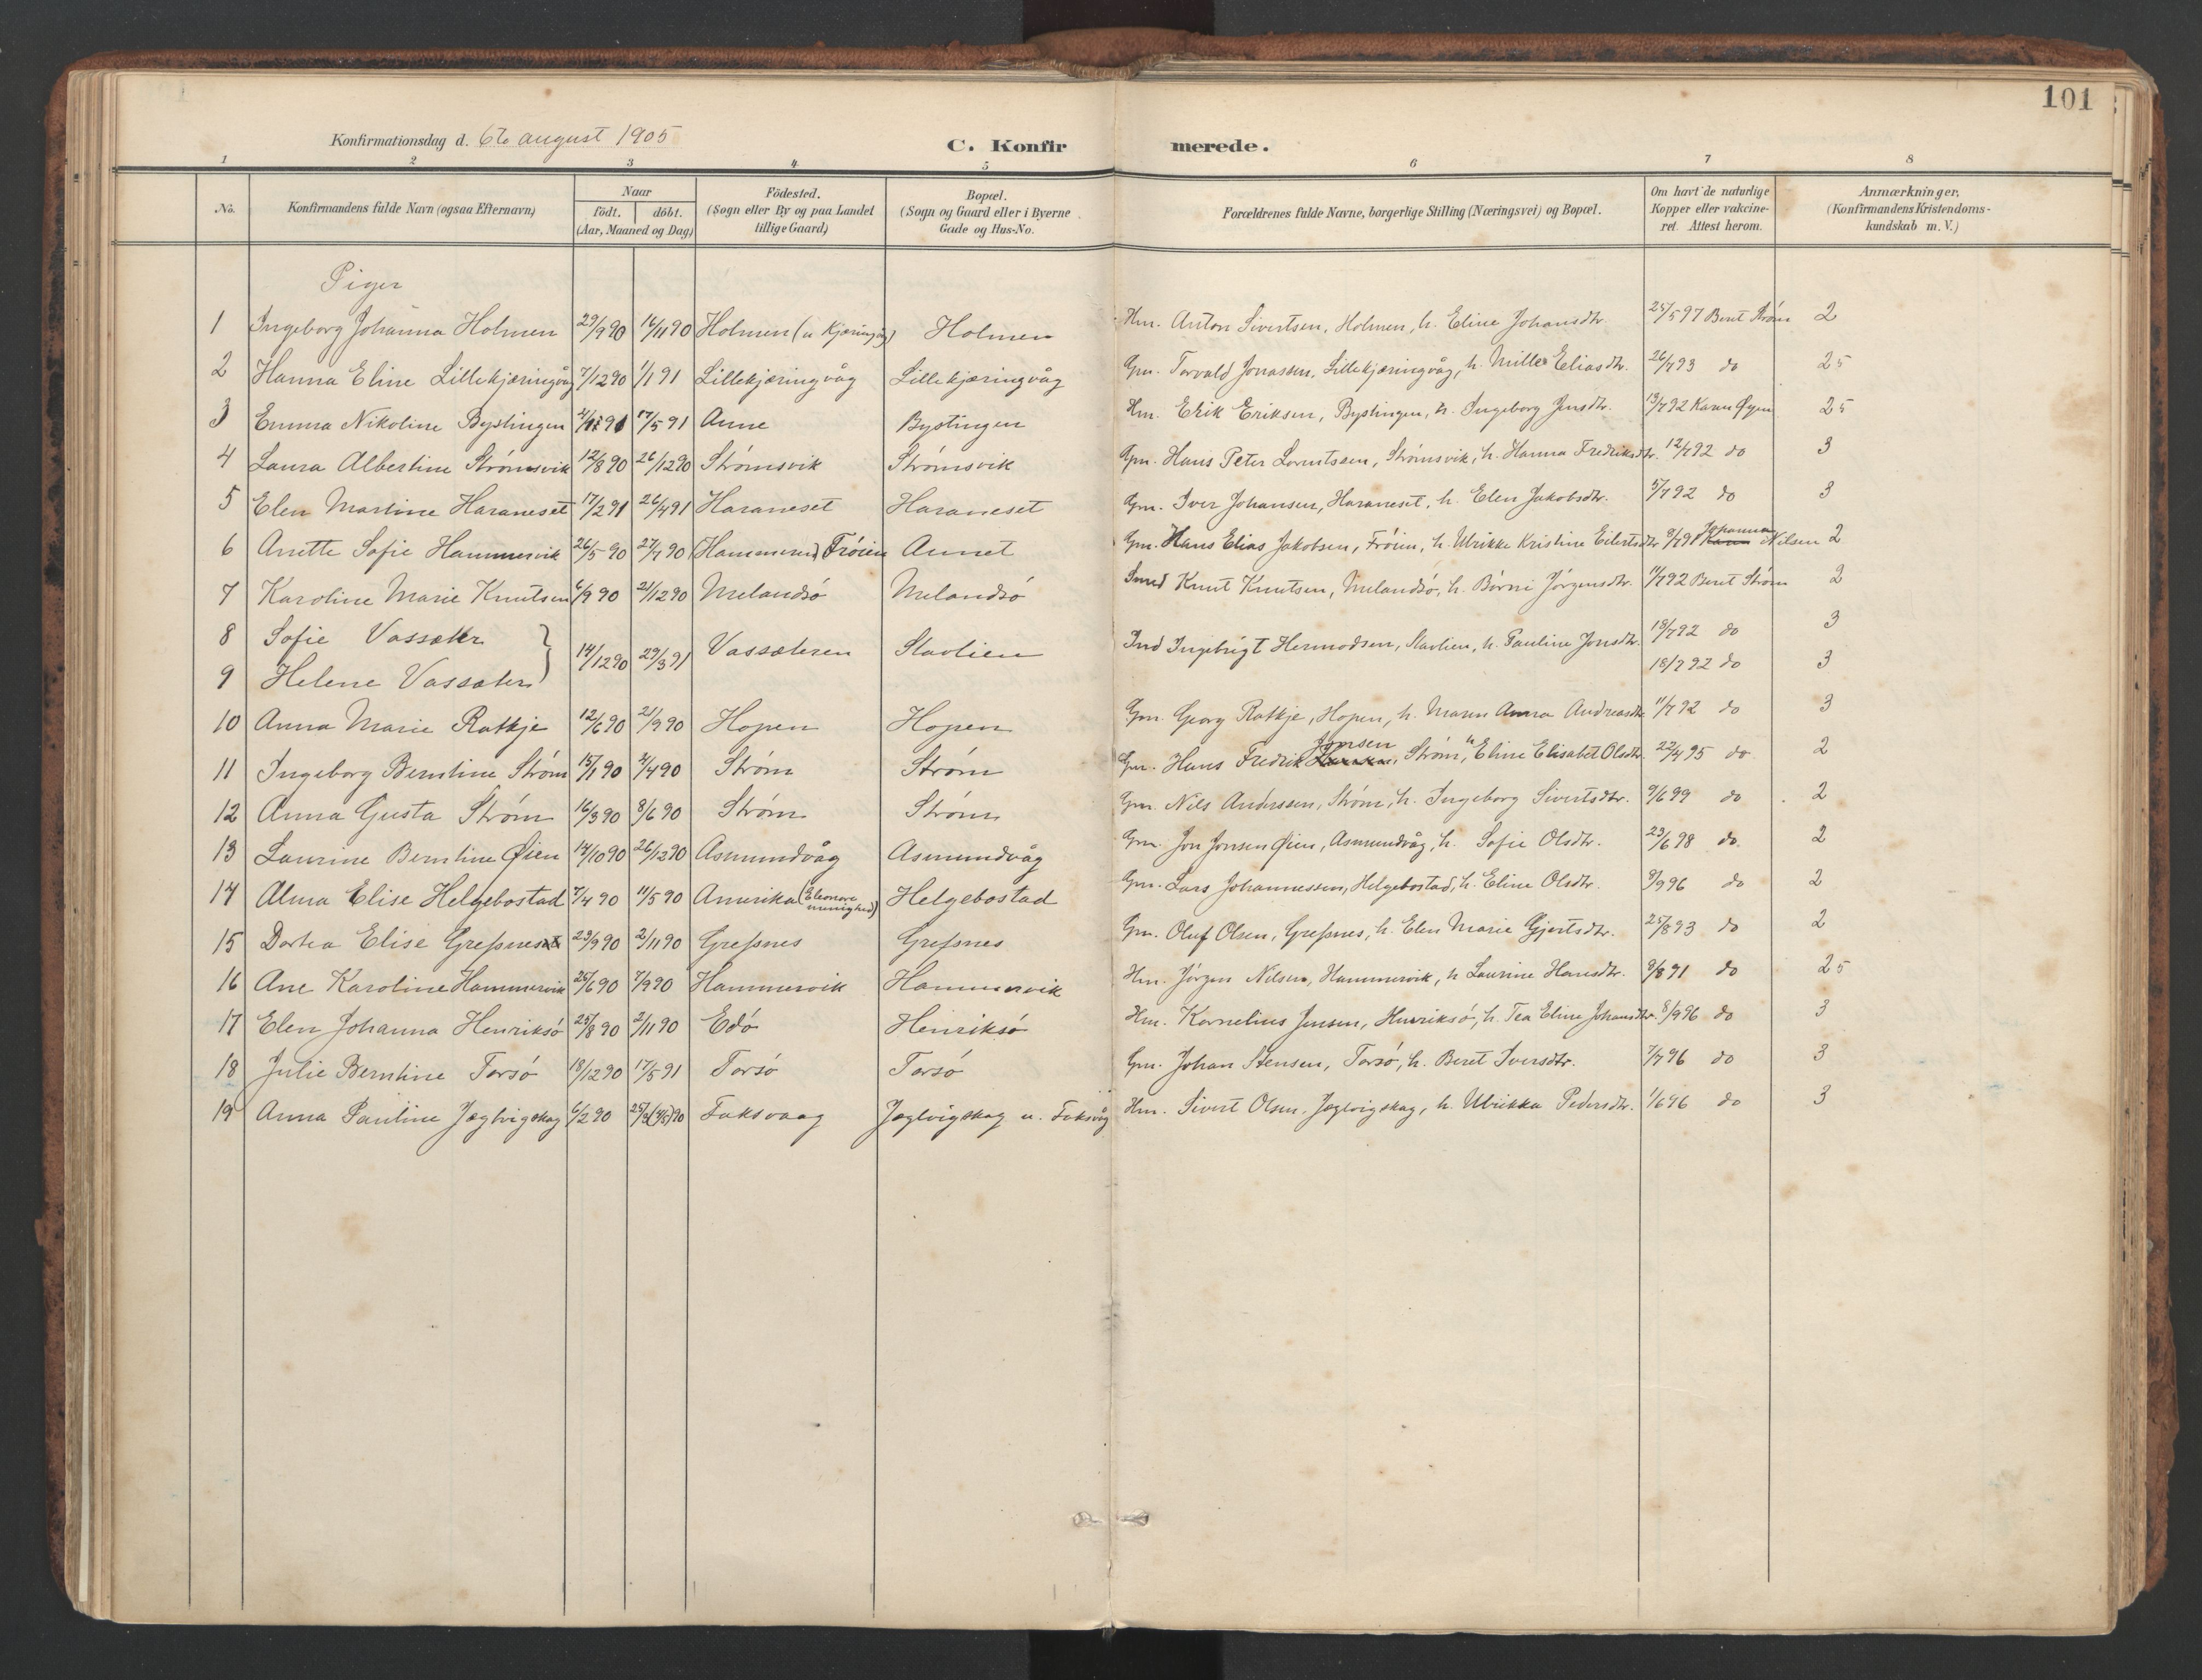 101
Konfirmationsdag d. 6te august 1905 C. Konfirmerede.
1 2 3 4 5 6 7 8
No. Konfirmandens fulde Navn (ogsaa Efternavn) Naar födt. döbt. (Aar, Maaned og Dag) Födested. (Sogn eller By og paa Landet tillige Gaard) Bopæl. (Sogn og Gaard eller i Byerne Gade og Hus-No. Forældrenes fulde Navne, borgerlige Stilling (Næringsvei) og Bopæl. Om havt de naturlige Kopper eller vakcineret. Attest herom. Anmærkninger. (Konfirmandens Kristendomskundskab m. V.)
Piger
1 Ingeborg Johanna Holmen 29/9 90 16/11 90 Holmen (u Kjæringvåg) Holmen Hm. Anton Sivertsen, Holmen, h. Eline Johansdtr. 25/5 97 Beret Strøm 2
2 Hanna Eline Lillekjæringvåg 7/12 90 1/1 91 Lillekjæringvåg Lillekjæringvåg Gm. Torvald Jonassen, Lillekjæringvåg, h. Mille Eliasdtr. 26/7 93 do 25
3 Emma Nikoline Bystingen 17/5 91 Anne Bystingen Hm. Erik Eriksen, Bystingen, h. Ingeborg Jensdtr. 13/7 92 Karen Øyen 25
4 Laura Albertine Strømsvik 12/8 90 26/12 90 Strømsvik Strømsvik Gm. Hans Peter Lorentsen, Strømsvik, h. Hanna Fredriksdtr. 12/7 92 do 3
5 Elen Martine Haraneset 17/2 91 26/4 91 Haraneset Haraneset Gm. Iver Johansen, Haraneset, h. Elen Jakobsdtr. 5/7 92 do 3
6 Anette Sofie Hammervik 26/5 90 27/7 90 Frøien Annet Gm. Hans Elias Jakobsen, Frøien, h. Ulrikke Kristine Eilertsdtr 9/7 91 Karen Johanna Nilsen 2
7 Karoline Marie Knutsen 6/9 90 21/12 90 Melandsø Melandsø Smed Knut Knutsen, Melandsø, h. Børni Jørgensdtr. 11/7 92 Beret Strøm 2
8 Sofie Vassæter } 14/12 90 29/3 91 Vassæteren Slavlien Ind Ingebrigt Hermodsen, Slavlien, h. Pauline Jonsdtr. 18/7 92 do 3
9 Helene Vassæter 18/7 92 do 3
10 Anna Marie Ratkje 12/6 90 21/9 90 Hopen Hopen Gm. Georg Ratkje, Hopen, h. Maren Anna Andreasdtr 11/7 92 do 3
11 Ingeborg Berntine Strøm 15/1 90 4/4 90 Strøm Strøm Gm. Hans Fredrik Hansen Jonsen, Strøm, h Eline Elisabet Olsdtr. 22/4 95 do 2
12 Anna Gusta Strøm 16/3 90 8/6 90 Strøm Strøm Gm. Nils Anderssen, Strøm, h. Ingeborg Sivertsdtr. 9/6 99 do 2
13 Laurine Berntine Øien 14/10 90 26/12 90 Asmundvåg Asmundvåg Gm. Jon Jonsen Øien, Asmundvåg, h. Sofie Olsdtr. 23/6 98 do 2
14 Alma Elise Helgebostad 7/4 90 11/5 90 Amerika (Eleonore menighed) Helgebostad Gm. Lars Johannessen, Helgebostad, h. Eline Olsdtr. 8/9 96 do 2
15 Dortea Elise Grefsnes 23/9 90 2/11 90 Grefsnes Grefsnes Gm. Oluf Olsen, Grefsnes, h. Elen Marie Gjertsdtr. 25/8 93 do 2
16 Ane Karoline Hammervik 25/6 90 7/9 90 Hammervik Hammervik Hm. Jørgen Nilsen, Hammervik, h Laurine Hansdtr. 9/8 91 do 25
17 Elen Johanna Henriksø 25/8 90 2/11 90 Edø Henriksø Hm. Kornelius Jensen, Henriksø, h. Tea Eline Johansdtr. 8/9 96 do 3
18 Julie Berntine Torsø 18/12 90 17/5 91 Torsø Torsø Gm. Johan Stensen, Torsø, h. Beret Iversdtr. 7/7 96 do 3
19 Anna Pauline Jægtvigskag 6/2 90 Faksvaag Jægtvigskag u. Faksvåg Hm. Sivert Olsen, Jægtvigskag, h. Ulrikka Pedersdtr. 1/6 96 do 3